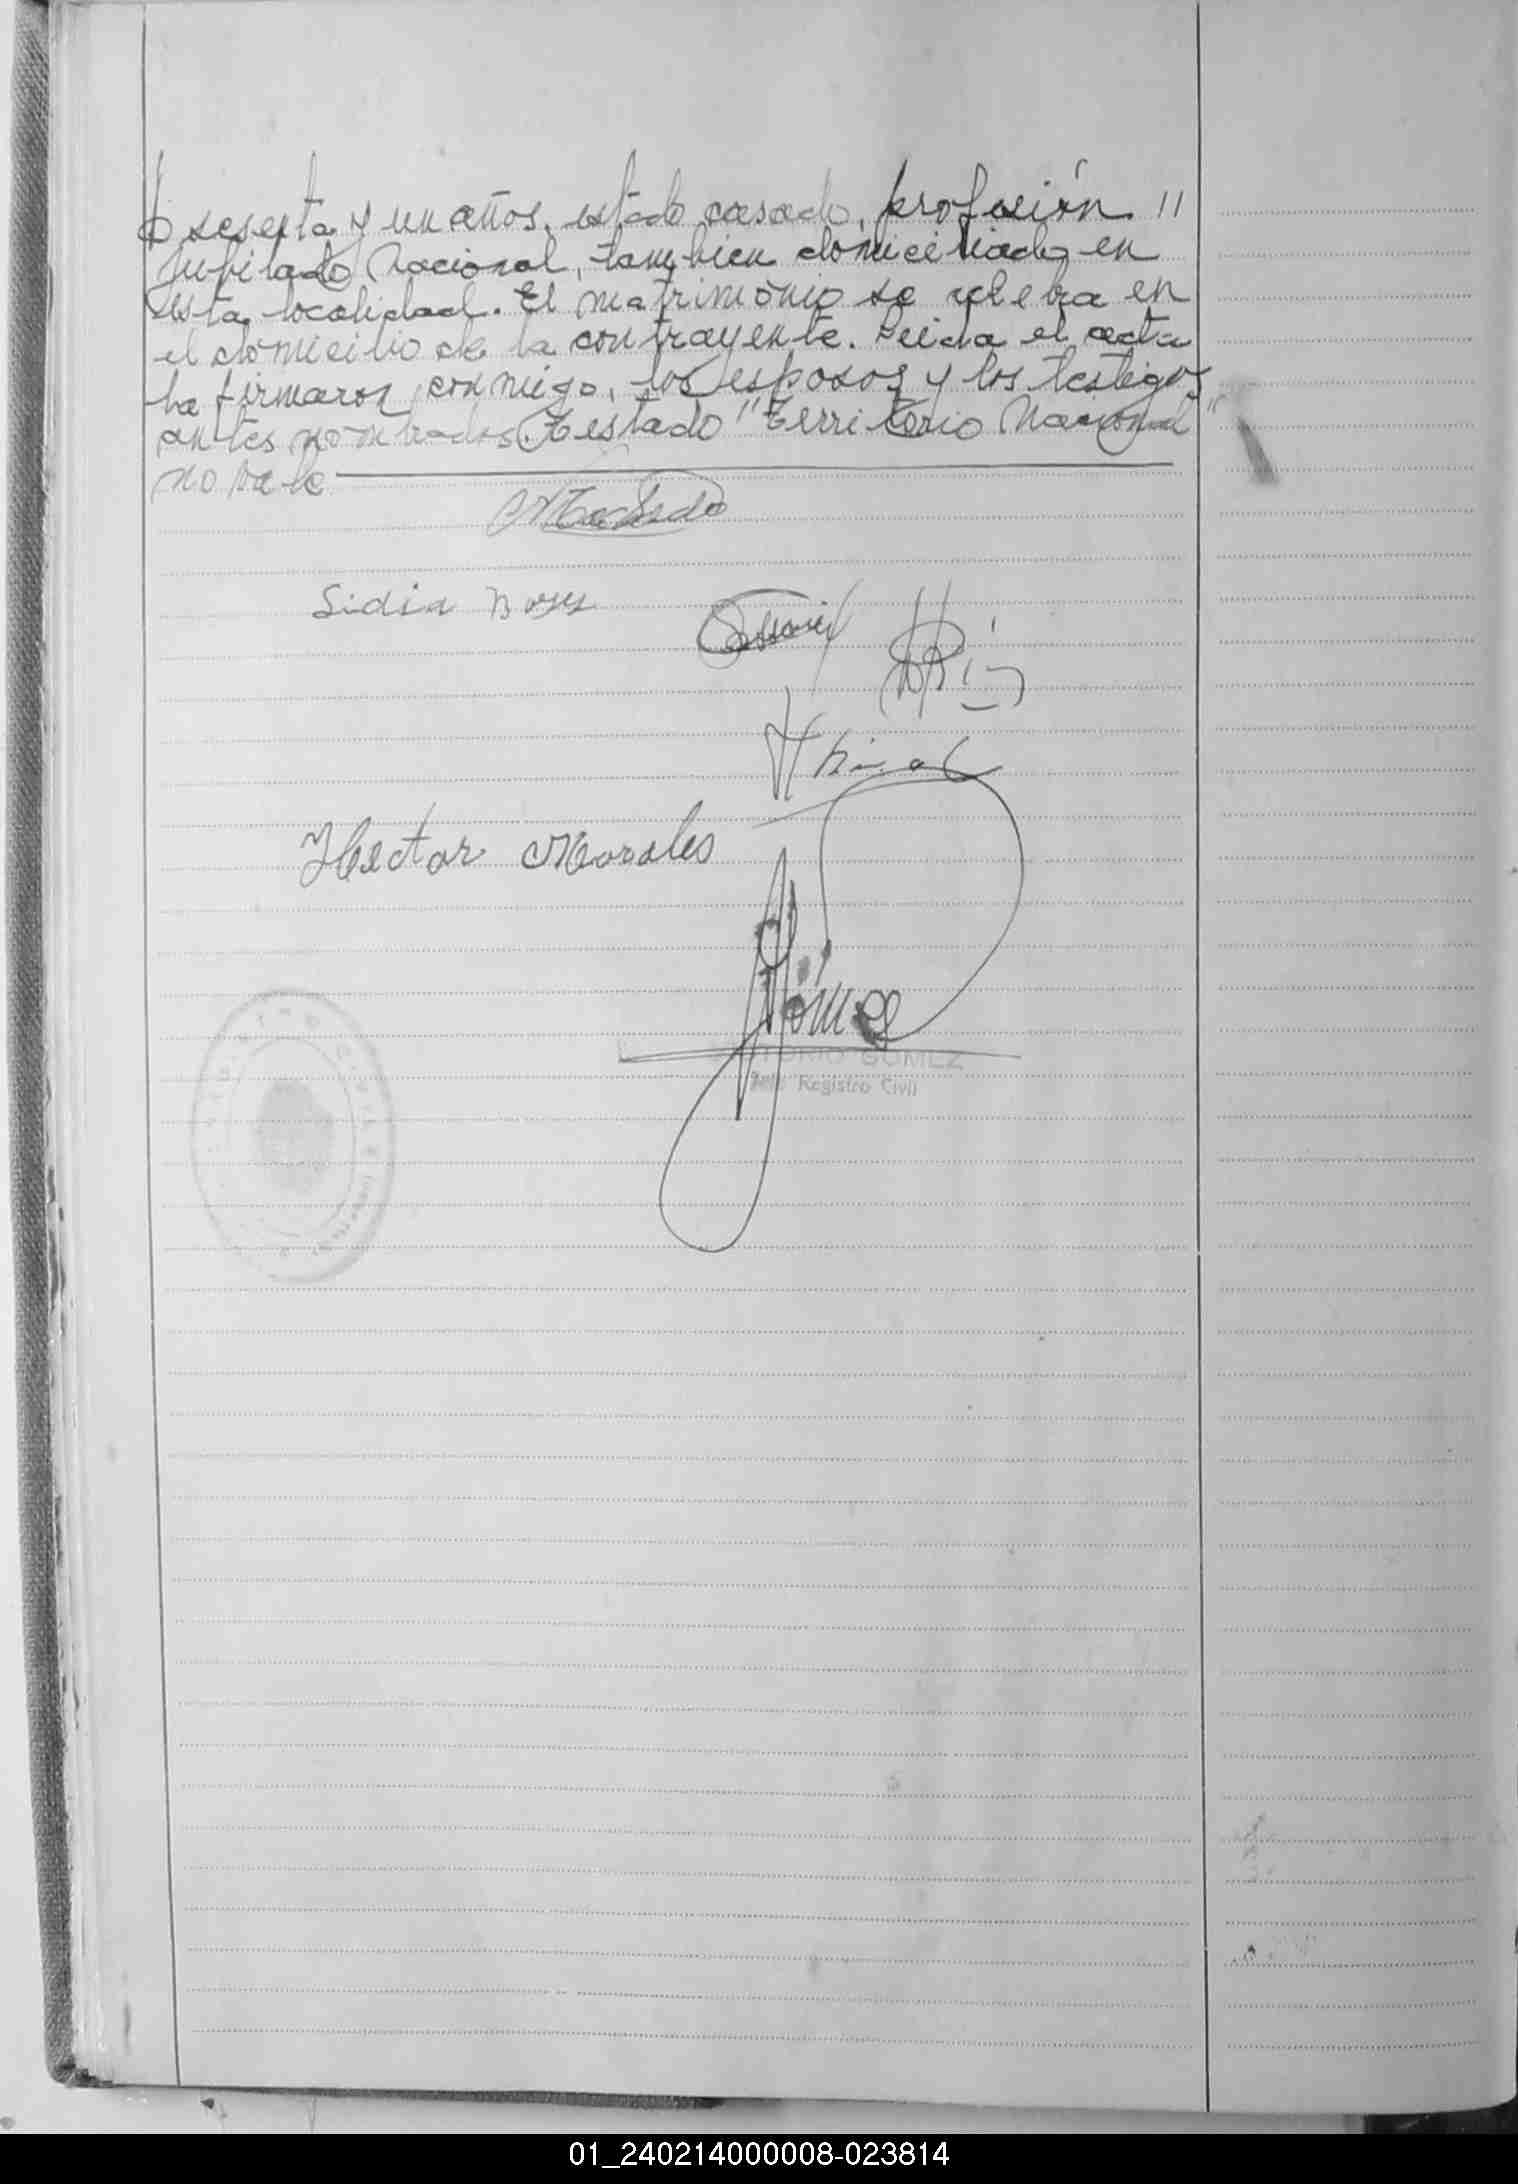 sesenta y un años, estado casado, profesión "
Jubilado Nacional, tambien domiciliado en
esta localidad. El matrimonio se celebra en
el domicilio de la contrayente. Leida el acta
la firmaron conmigo, los esposos y los testigos
antes nombrados. Testado "Territorio Nacional"
no vale
Machado
Lidia
Hector Morales
Gómez
GOMEZ
Jefe Registro Civil
01_240214000008-023814